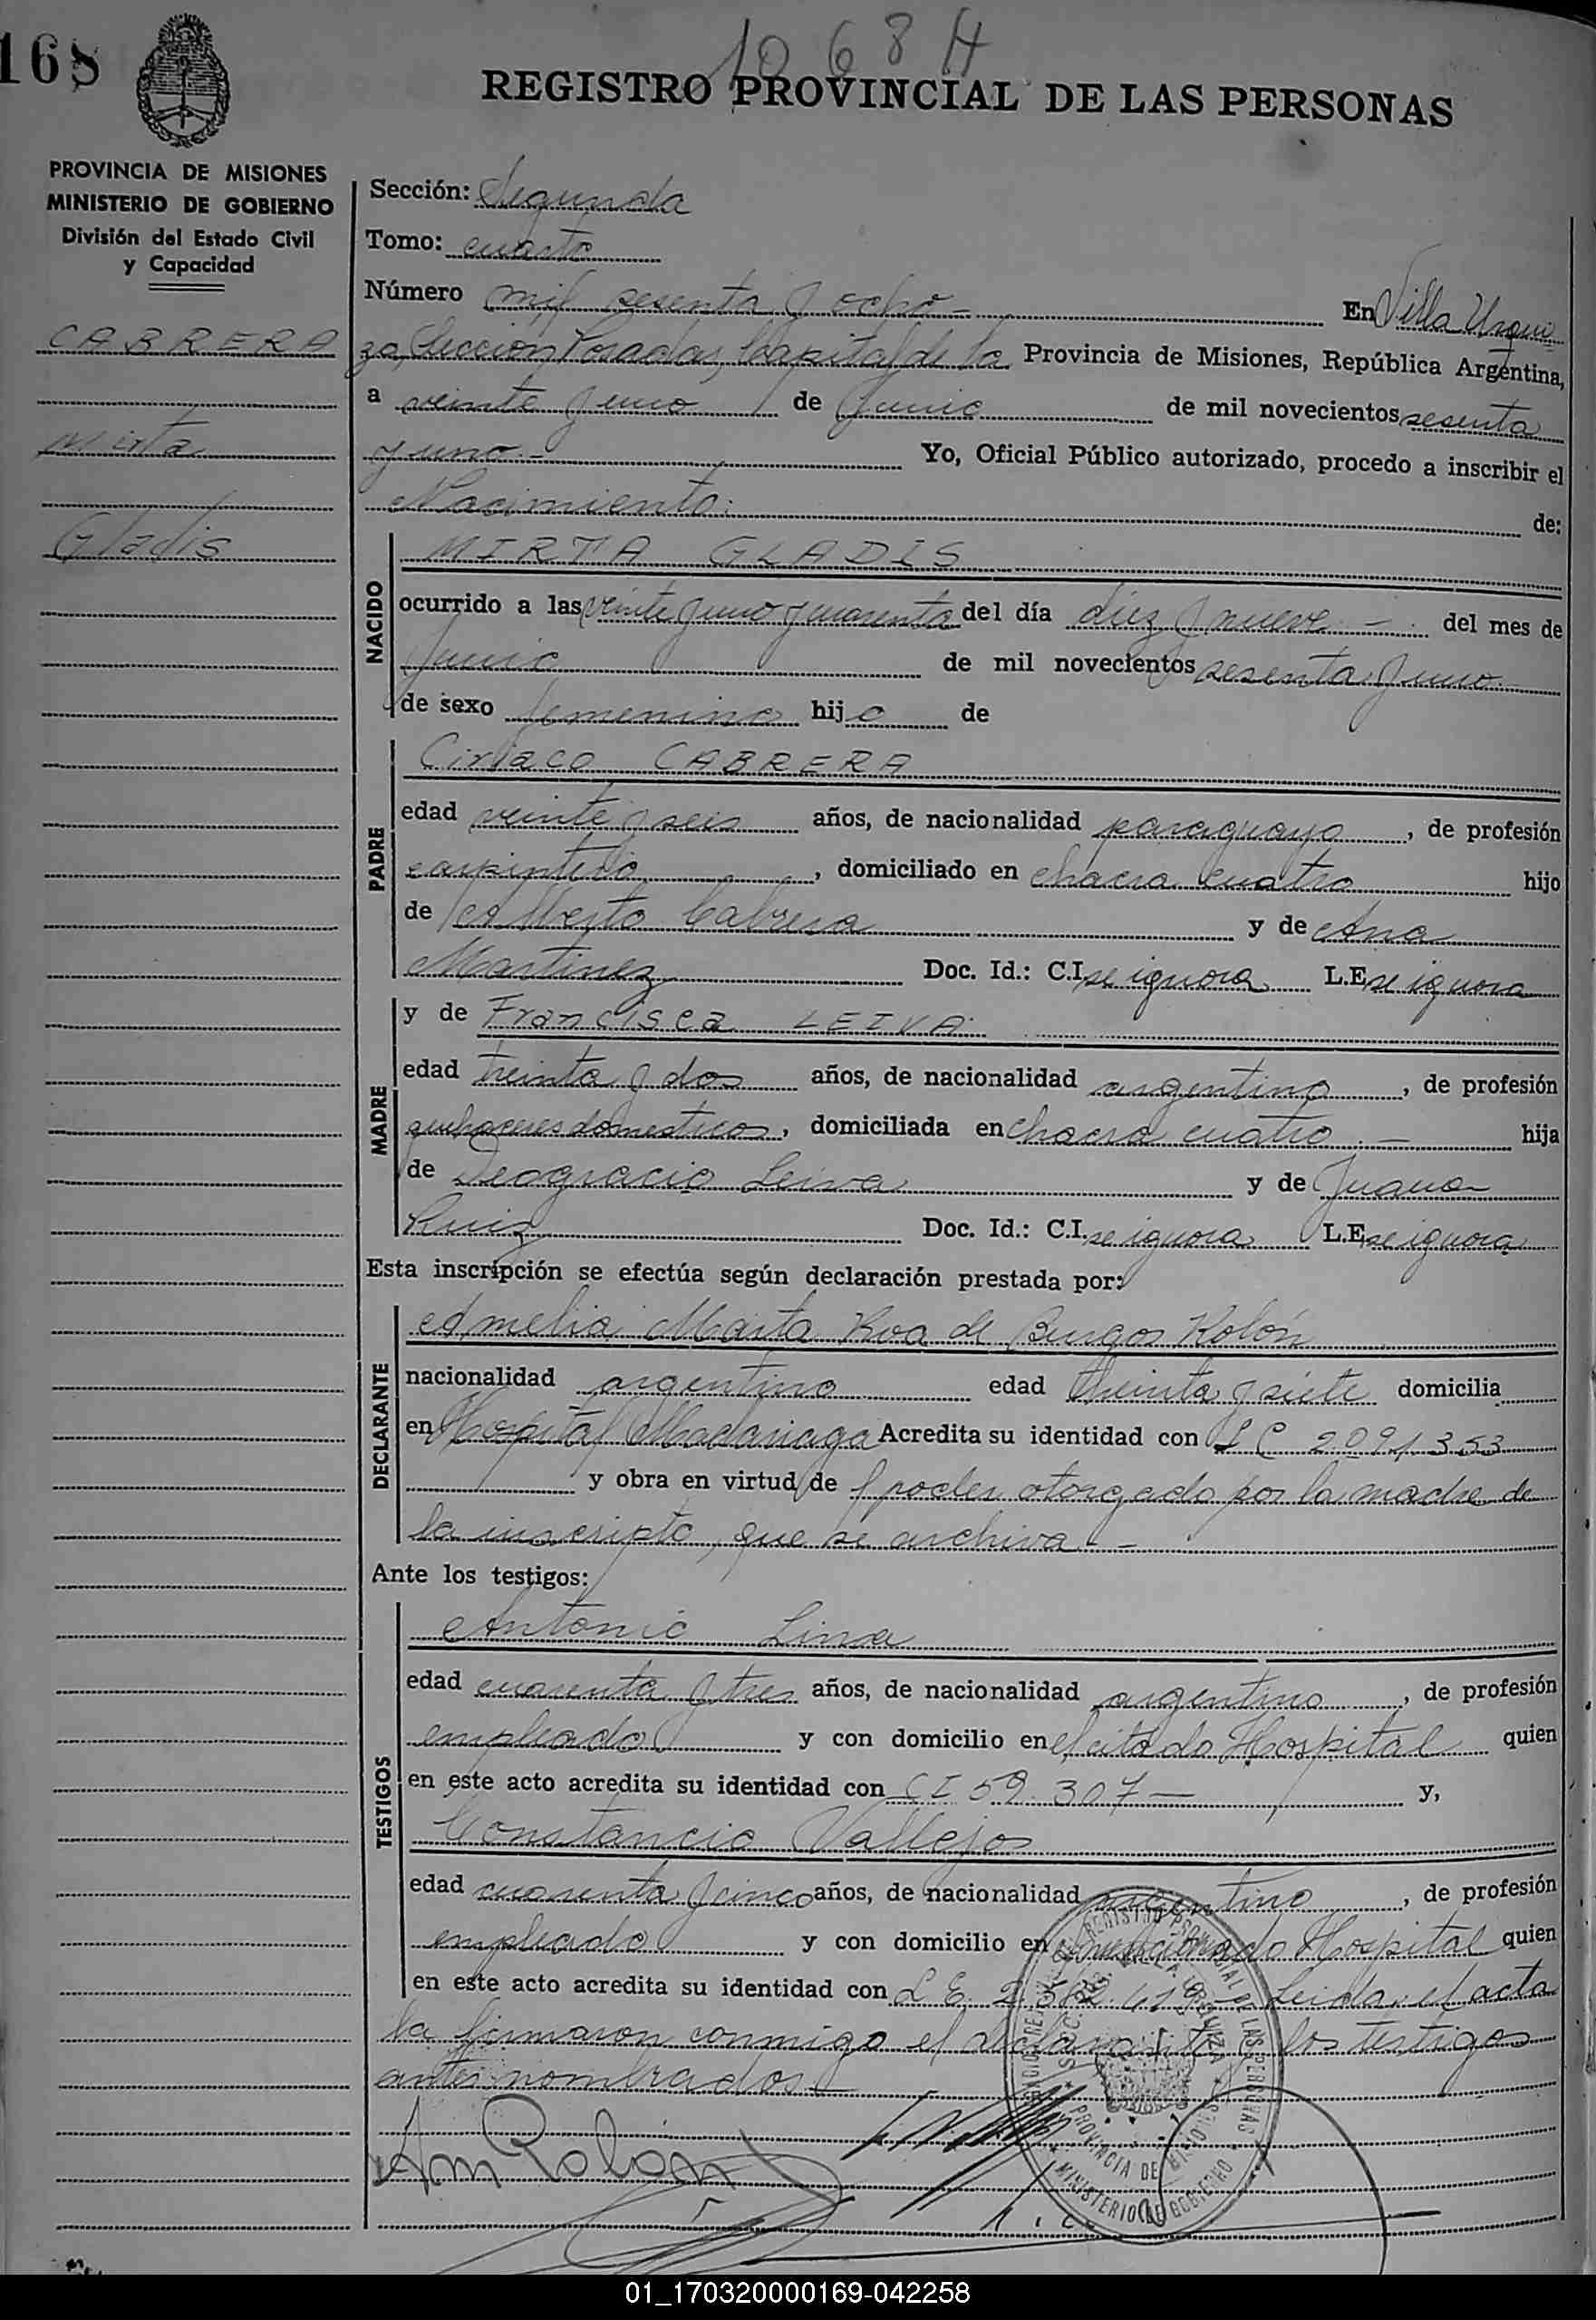 168
1068 H
REGISTRO PROVINCIAL DE LAS PERSONAS
PROVINCIA DE MISIONES
MINISTERIO DE GOBIERNO
División del Estado Civil
y Capacidad
CABRERA
Mirta
Gladis
Sección: Segunda
Tomo: cuarto
Número mil sesenta y ocho - En Villa Urqui
za, Sección Posadas, Capital de la Provincia de Misiones, República Argentina,
a veinte y uno de Junio de mil novecientos sesenta
y uno.- Yo, Oficial Público autorizado, procedo a inscribir el
Nacimiento: de:
NACIDO
MIRTA GLADIS
ocurrido a las veinte y uno y cuarenta del día diez y nueve - del mes de
Junio de mil novecientos sesenta y uno.
de sexo femenino hijo de
PADRE
Ciriaco CABRERA
edad veinte y seis años, de nacionalidad paraguayo, de profesión
carpintero, domiciliado en chacra cuatro hijo
de Alberto Cabrera y de Ana
Martinez Doc. Id.: C.I. se ignora L.E. se ignora
MADRE
y de Francisca LEIVA
edad treinta y dos años, de nacionalidad argentina, de profesión
quehaceres domesticos, domiciliada en chacra cuatro.- hija
de Deogracio Leiva y de Juana
Ruiz Doc. Id.: C.I. se ignora L.E. se ignora
Esta inscripción se efectúa según declaración prestada por:
DECLARANTE
Amelia Marta de Burgos Rolón
nacionalidad argentina edad treinta y siete domicilia
en Hospital Madariaga Acredita su identidad con L C 2.091.353
y obra en virtud de poder otorgado por la madre de
la inscripta, que se archiva.-
Ante los testigos:
TESTIGOS
Antonio Lima
edad cuarenta y tres años, de nacionalidad argentino, de profesión
empleado y con domicilio en el citado Hospital quien
en este acto acredita su identidad con CI 59.307 - y,
Constancio Vallejos
edad cuarenta y cinco años, de nacionalidad argentino, de profesión
empleado y con domicilio en Hospital quien
en este acto acredita su identidad con L E. Leida el acta
la firmaron conmigo el declarante y los testigos
antes nombrados.-
Am Rolón
REGISTRO PROVINCIAL DE LAS PERSONAS
PROVINCIA DE MISIONES
MINISTERIO DE GOBIERNO
01_170320000169-042258